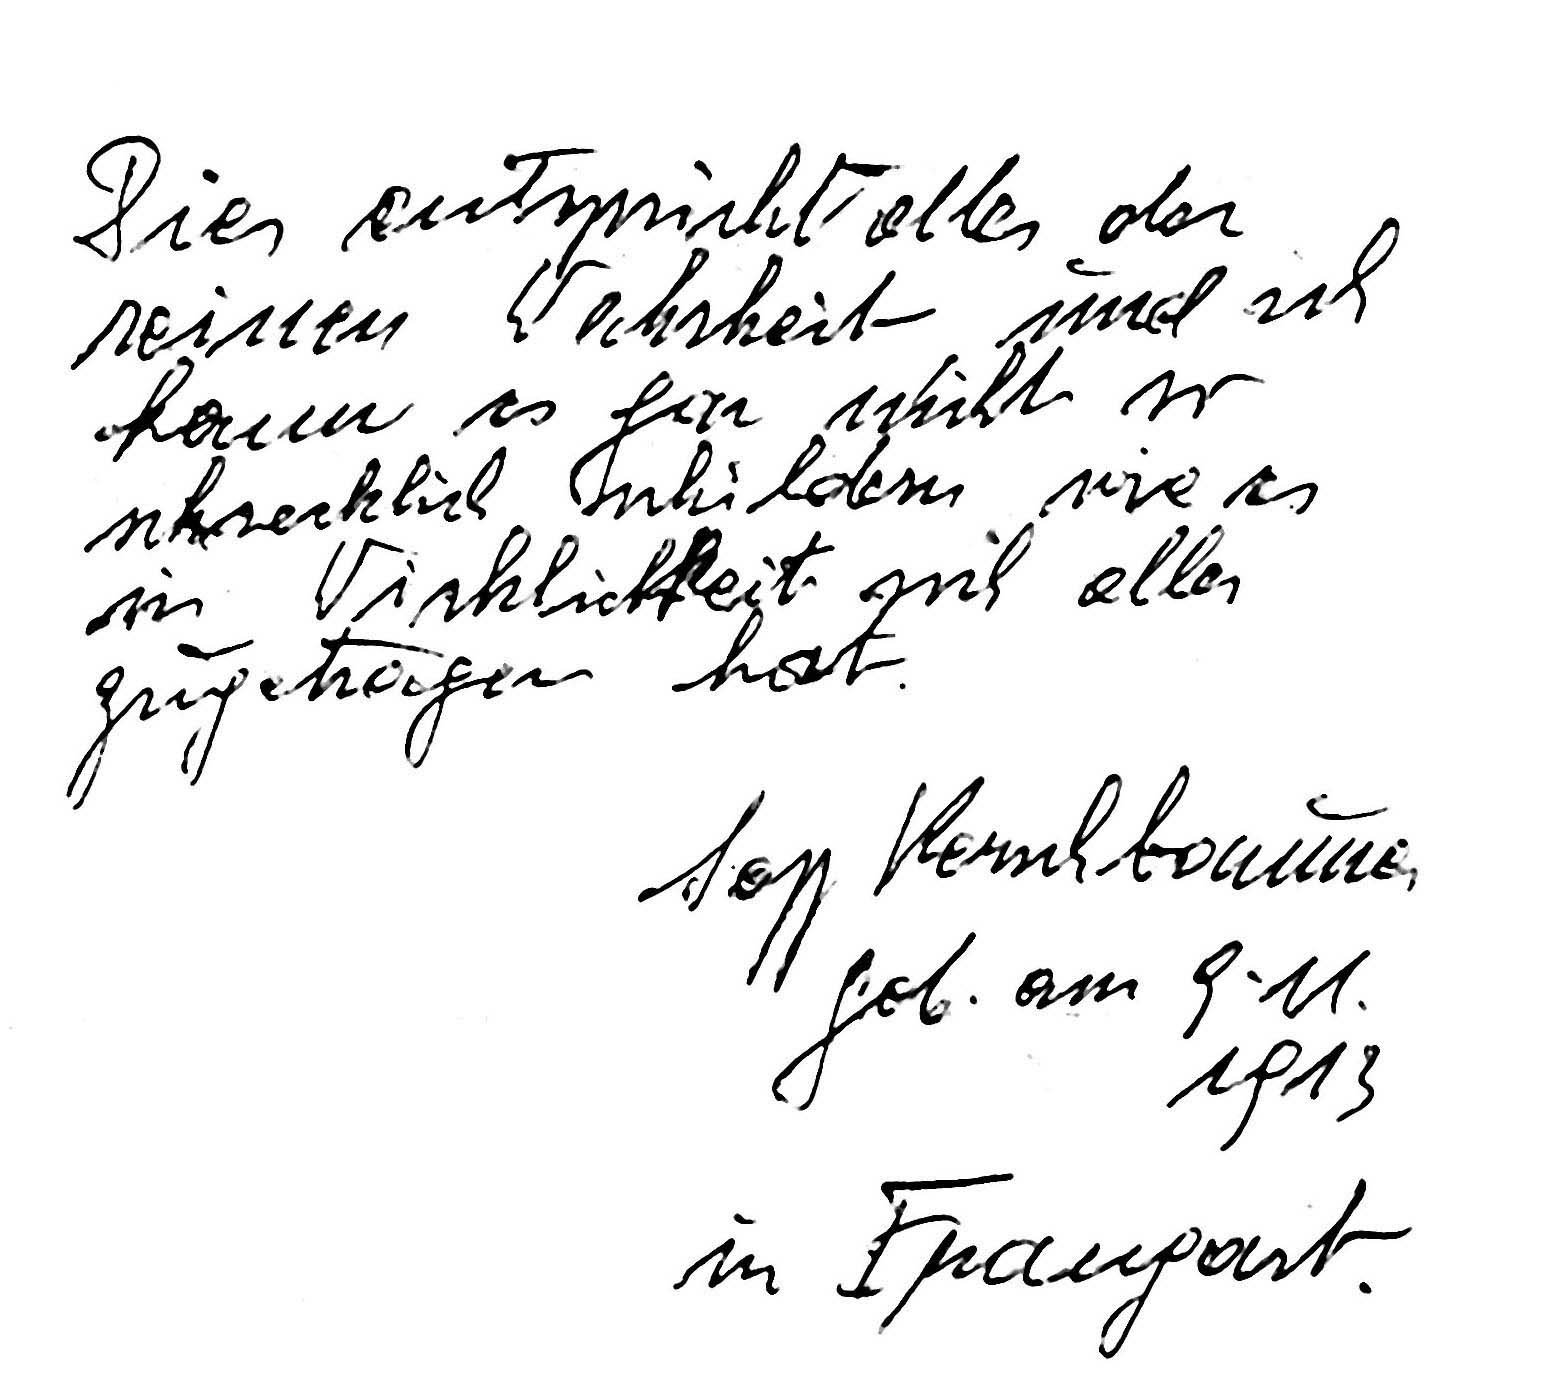 Dies entspricht alles der
reinen Wahrheit und ich
kann es gar nicht so
schrecklich schildern wie es
in Wirklichkeit sich alles
zugetragen hat.
Sepp Kerschbaumer
geb. am 9.11.
1913
in Frangart.